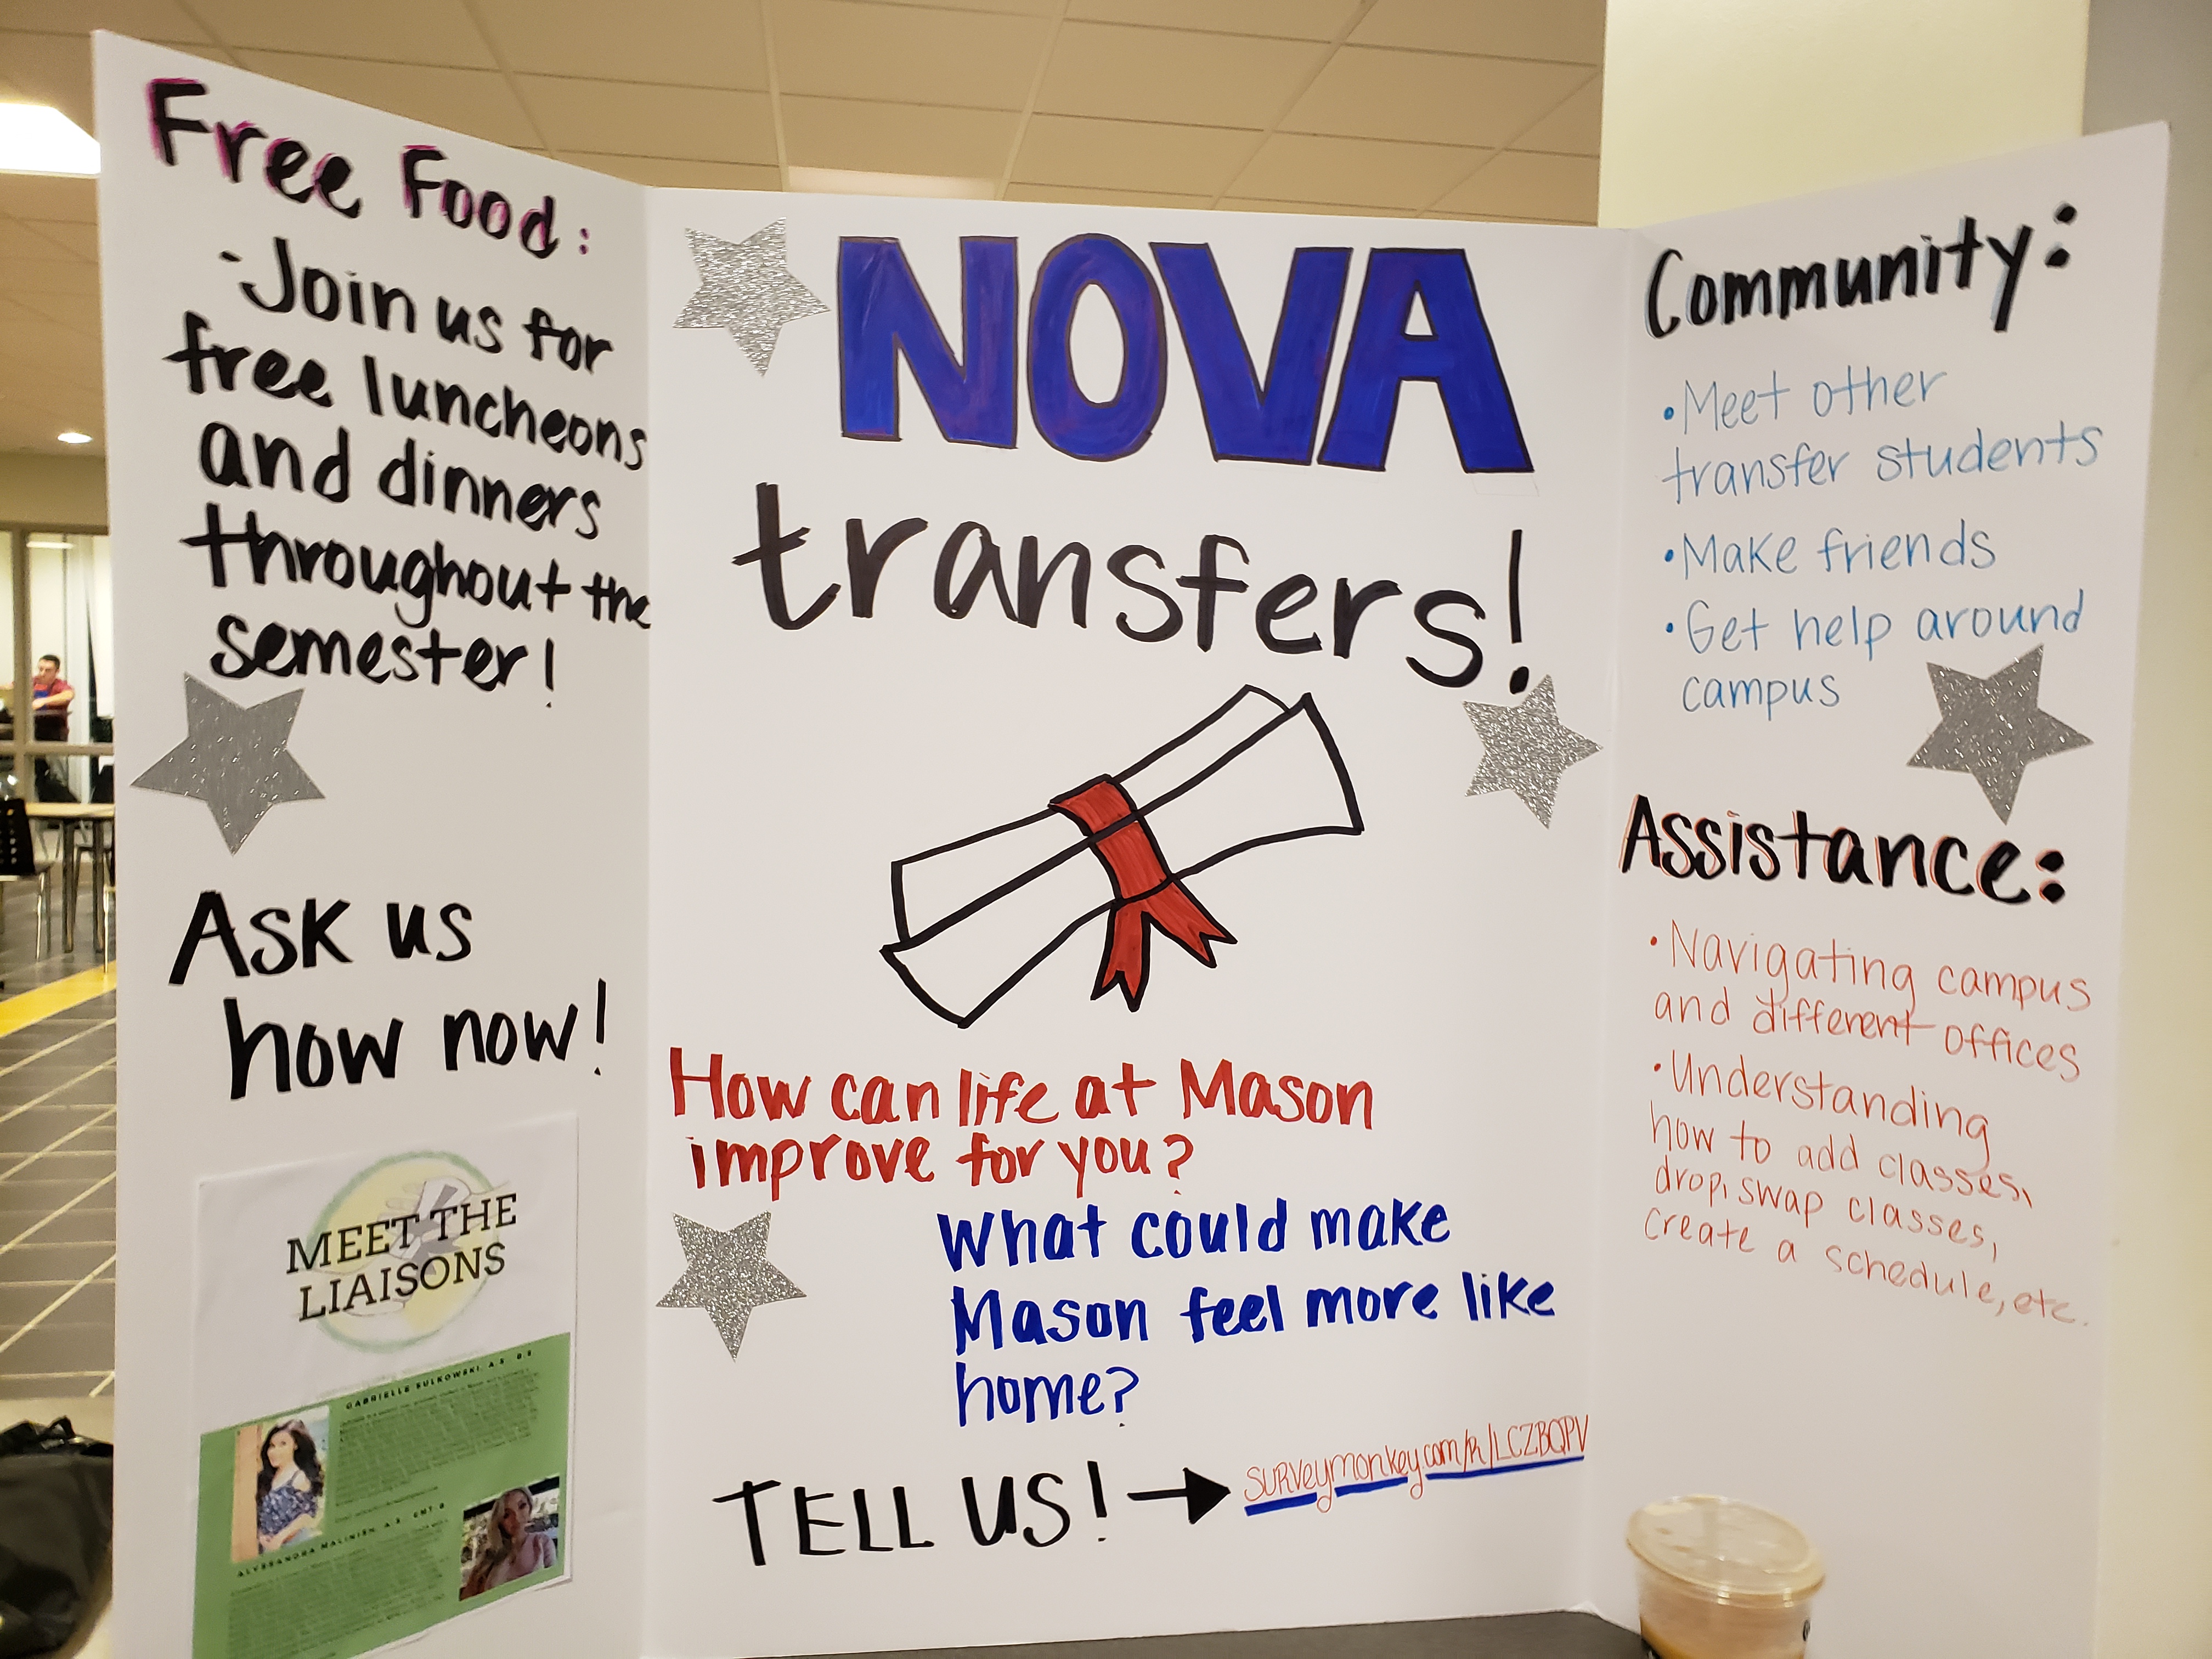 Free Food:
-Join us for
free luncheons
and dinners
throughout the
semester!
Ask us
how now!
MEET THE
LIAISONS
GABRIELLE SULKOWSKI, A.S. B.S.
ALYSSANDRA MALINISH, A.S. CMT-B
NOVA
transfers!
How can life at Mason
improve for you?
What could make
Mason feel more like
home?
TELL US! → surveymonkey.com/R/LCZBQPV
Community:
• Meet other
transfer students
• Make friends
• Get help around
campus
Assistance:
• Navigating campus
and different offices
• Understanding
how to add classes,
drop, swap classes,
create a schedule, etc.